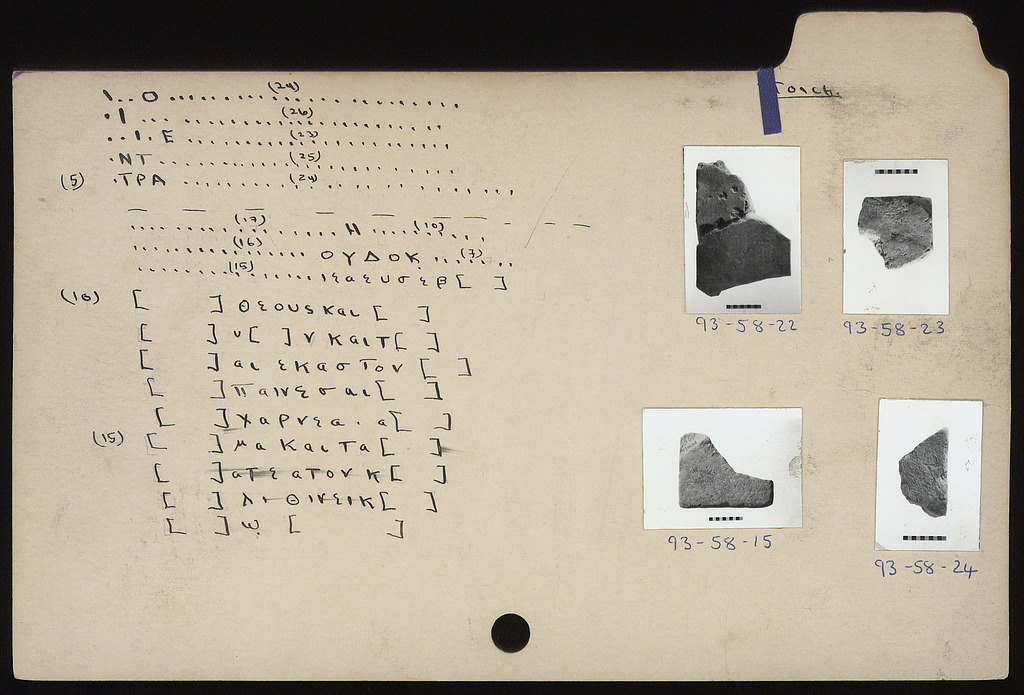 Torch.
\..O ......(24)......
.I... ......(26)......
..I.E ......(23)......
.NT ......(25)......
(5) .TPA ......(24)......
......(17)...... H ....(10)....
......(16)...... ΟΥΔΟΚ ...(7)...
......(15)......ιεαευσεβ[ ]
(10) [ ] θεουςκαι [ ]
[ ] υ[ ]ν καιτ[ ]
[ ] αι εκαστον [ ]
[ ] παινεσαι[ ]
[ ] χαρνεα.α[ ]
(15) [ ] μακαιτα[ ]
[ ] ατεατονκ[ ]
[ ] λιθινεικ[ ]
[ ] ω [ ]
93-58-22
93-58-23
93-58-15
93-58-24